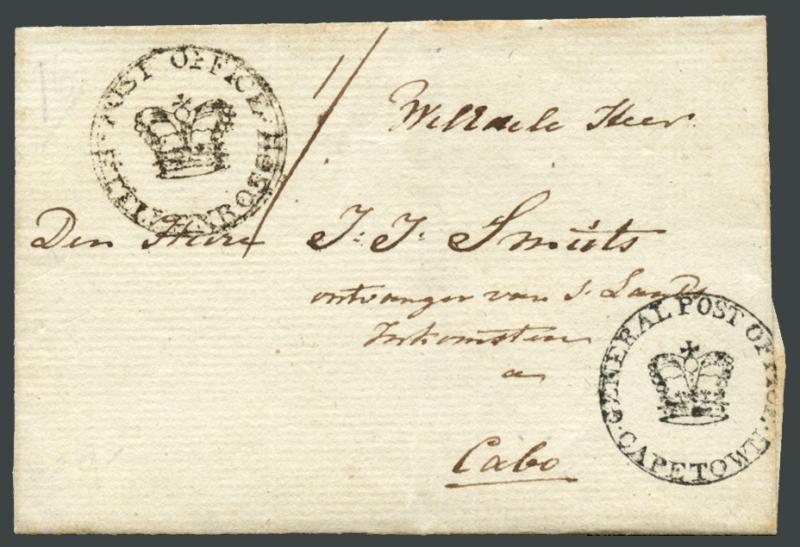 POST OFFICE
GENERAL POST OFFICE
CAPETOWN
Heer
Den Heere J: J: Smuts
ontvanger van 's Lands
Inkomsten
a
Cabo